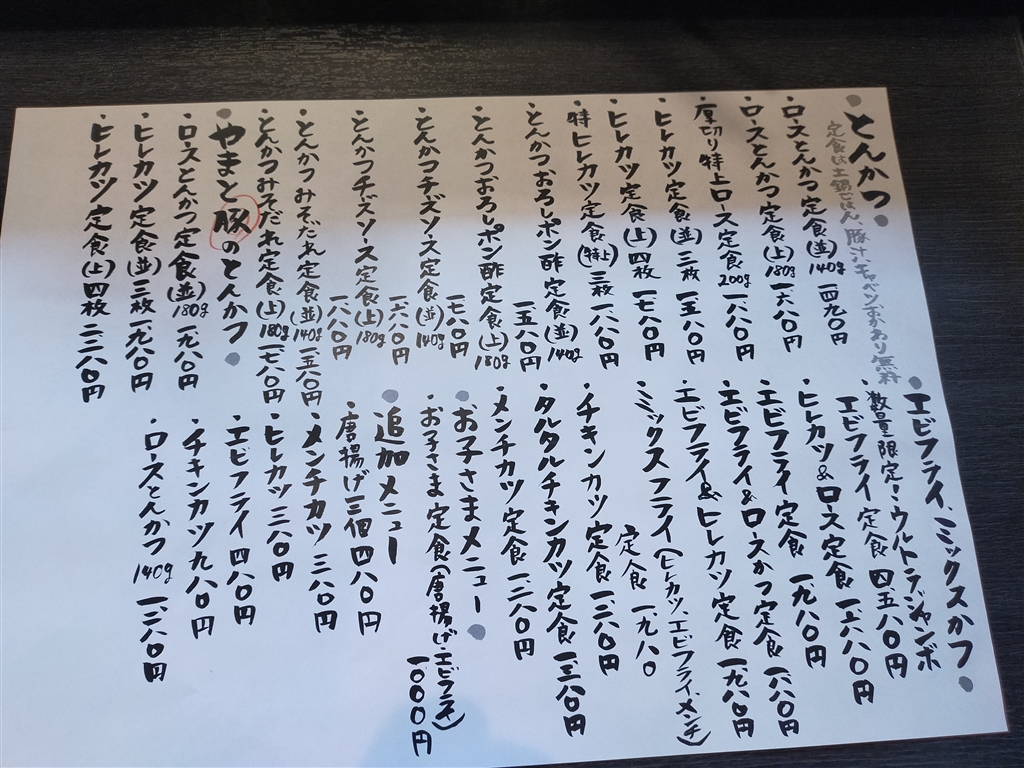 ・とんかつ・
定食は土鍋ごはん、豚汁、キャベツ、おかわり無料
・ロースとんかつ定食(並)140g 一四九〇円
・ロースとんかつ定食(上)180g 一六八〇円
厚切り特上ロース定食 200g 一八八〇円
・ヒレカツ定食(並)三枚 一五八〇円
・ヒレカツ定食(上)四枚 一七八〇円
特ヒレカツ定食(特上)三枚 一八八〇円
・とんかつおろしポン酢定食(並)140g
一五八〇円
・とんかつおろしポン酢定食(上)180g
一七八〇円
・とんかつチーズソース定食(並)140g
一六八〇円
・とんかつチーズソース定食(上)180g
一八八〇円
・とんかつみそだれ定食(並)140g 一五八〇円
・とんかつみそだれ定食(上)180g 一七八〇円
・やまと豚のとんかつ・
・ロースとんかつ定食(並)180g 一九八〇円
・ヒレカツ定食(並)三枚 一九八〇円
・ヒレカツ定食(上)四枚 二二八〇円
・エビフライ、ミックスかつ・
・数量限定!ウルトラジャンボ
エビフライ定食 四五八〇円
・ヒレカツ&ロース定食 一六八〇円
・エビフライ定食 一九八〇円
・エビフライ&ロースかつ定食 一八八〇円
・エビフライ&ヒレカツ定食 一九八〇円
・ミックスフライ(ヒレカツ、エビフライ、メンチ)
定食 一九八〇
・チキンカツ定食 一二八〇円
・タルタルチキンカツ定食 一三八〇円
・メンチカツ定食 一二八〇円
・お子さまメニュー・
・お子さま定食(唐揚げ・エビフライ)
一〇〇〇円
・追加メニュー
・唐揚げ三個 四八〇円
・メンチカツ 三八〇円
・ヒレカツ 三八〇円
・エビフライ 四八〇円
・チキンカツ 九八〇円
・ロースとんかつ 140g 一二八〇円